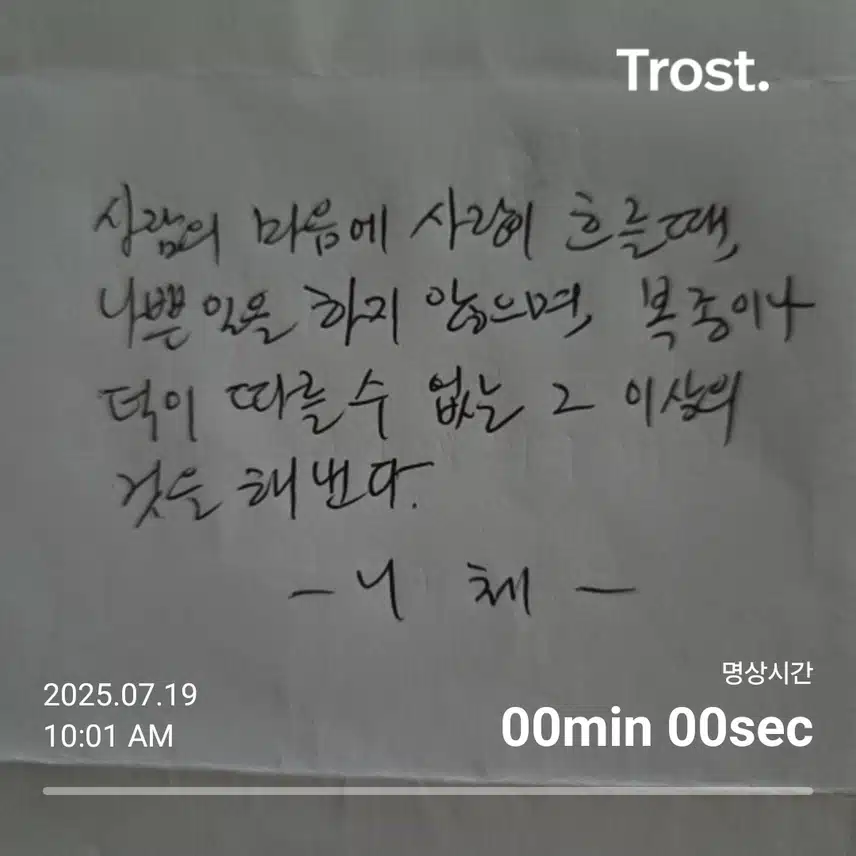 Trost.
사람의 마음에 사랑이 흐를때,
나쁜 일을 하지 않으며, 복종이나
덕이 따를 수 없는 그 이상의
것을 해낸다.
- 니 체 -
2025.07.19
10:01 AM
명상시간
00min 00sec